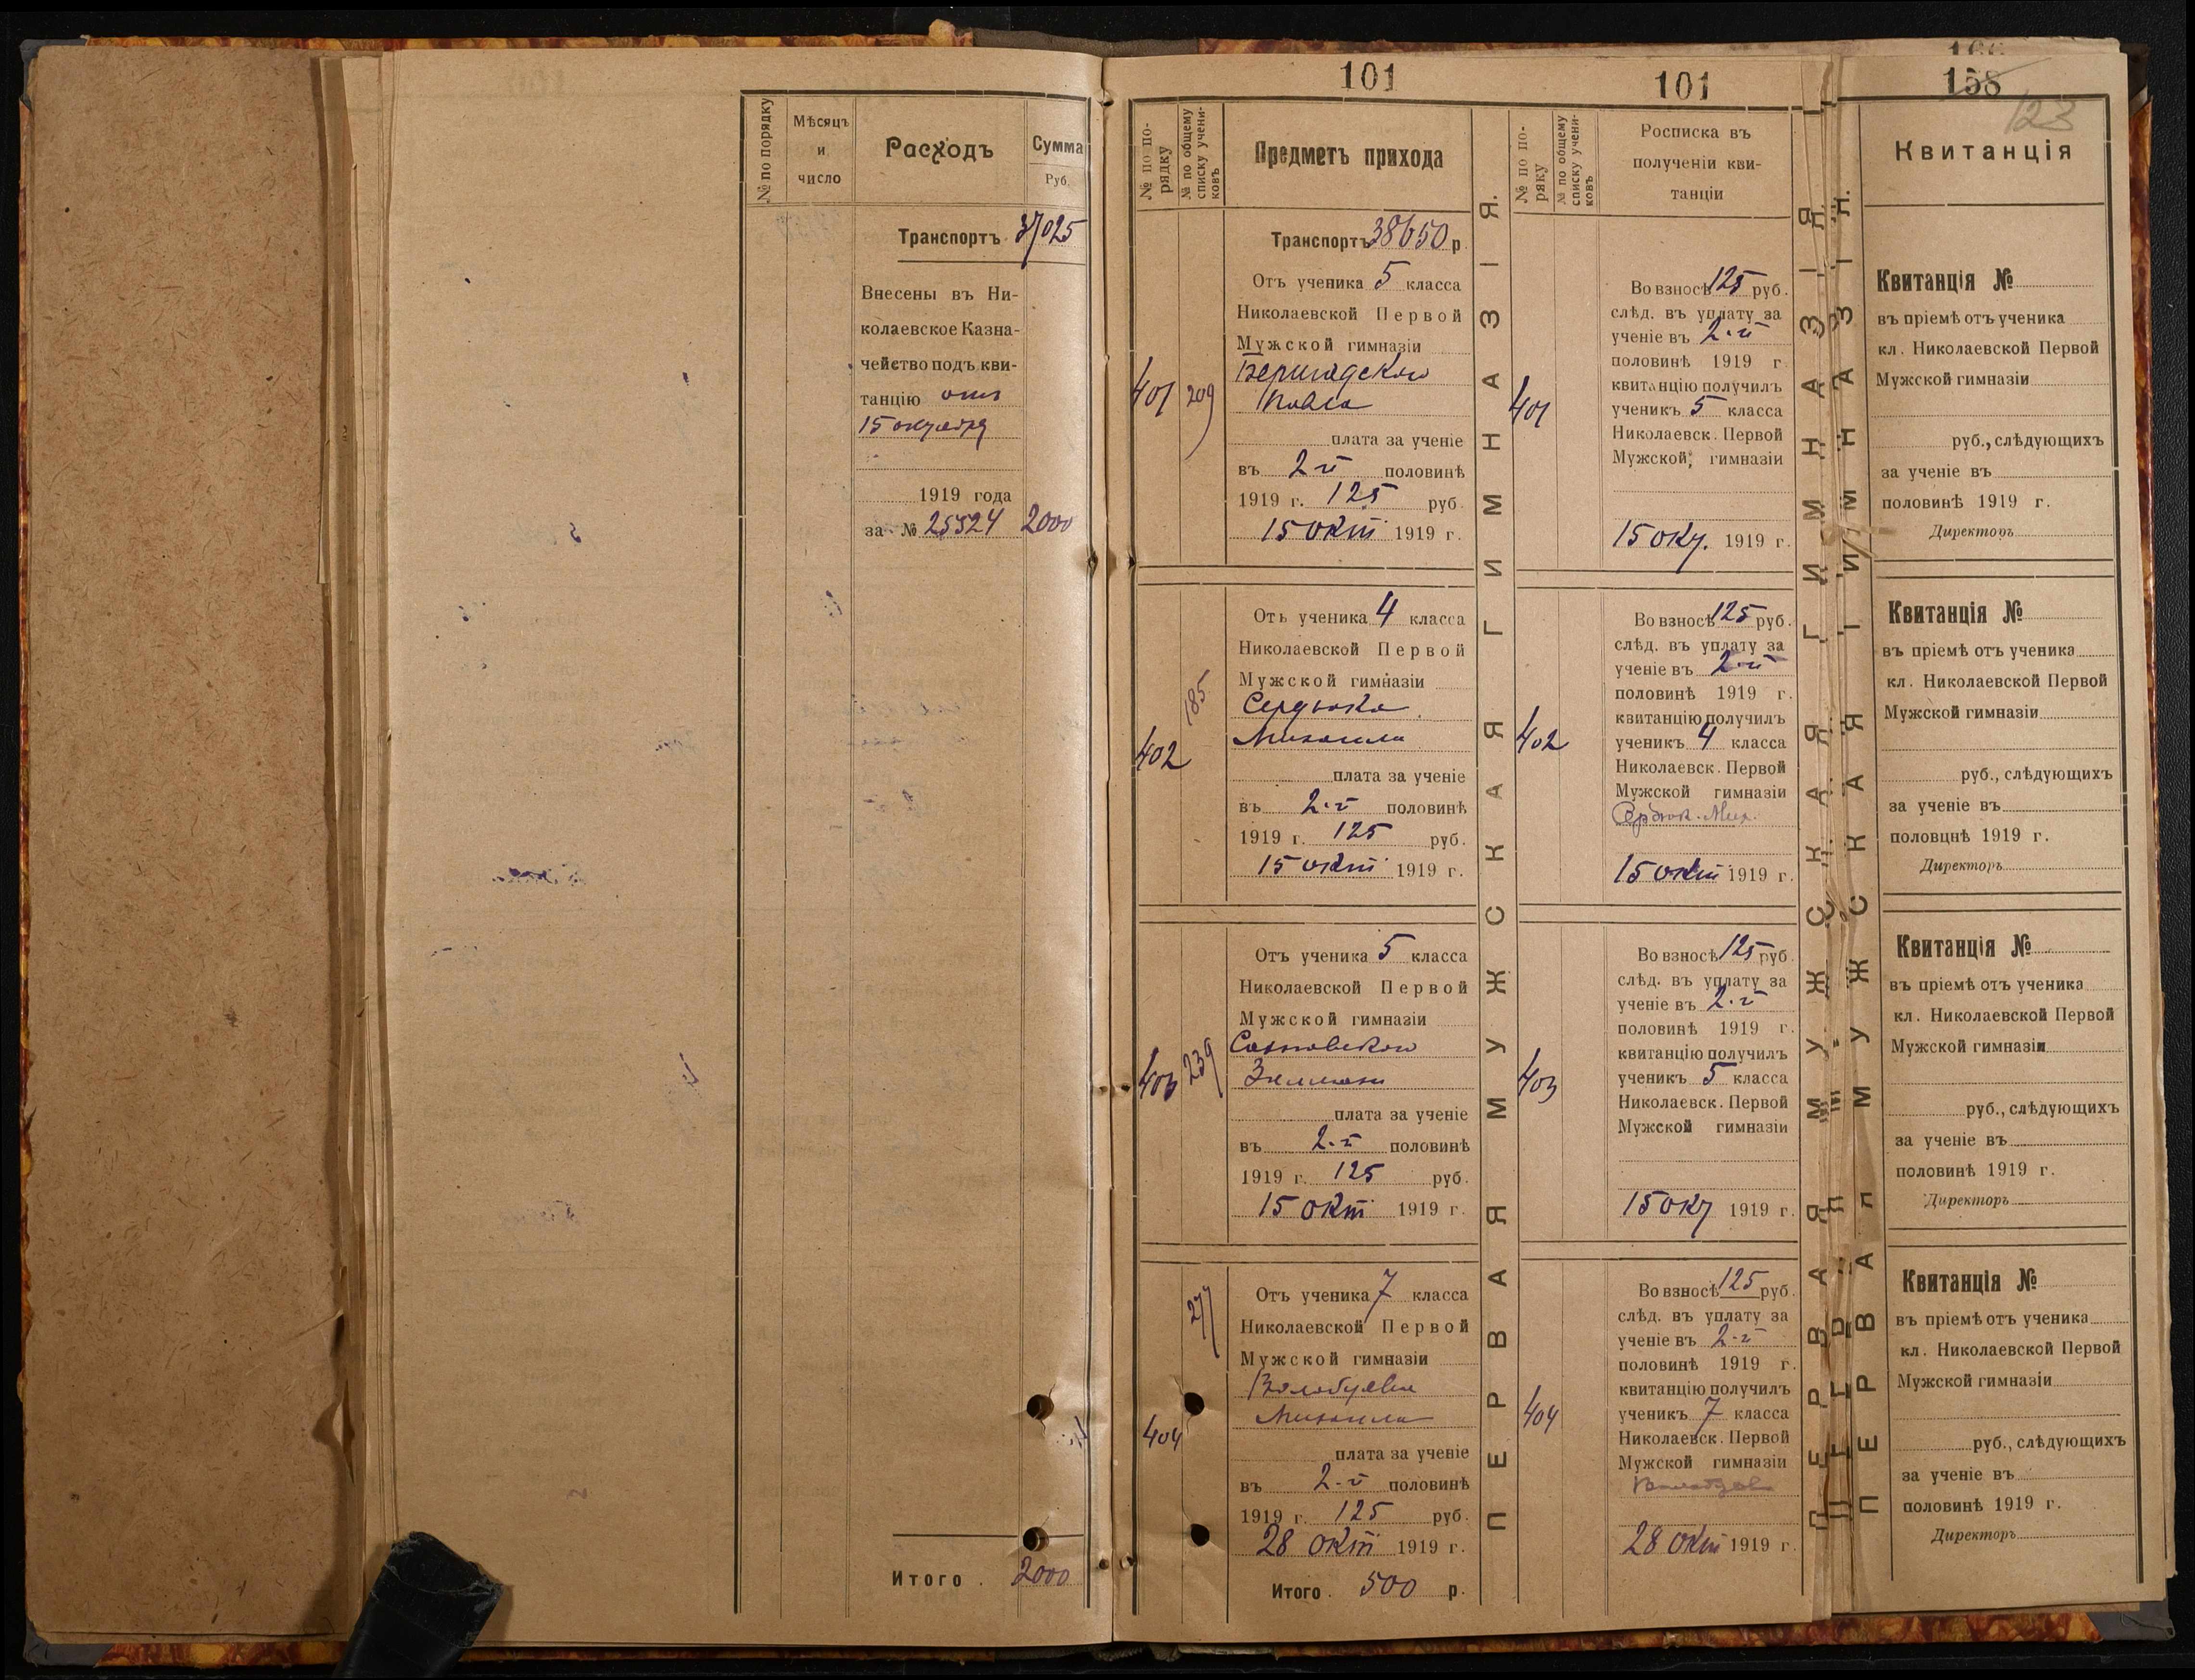 № по порядку
Мѣсяцъ
и
число
Расходъ
Сумма
Руб.
Транспортъ 37025
Внесены въ Ни-
колаевское Казна-
чейство подъ кви-
танцію отъ
15 октября
1919 года
за № 25524 2000
Итого . 2000
101
№ по по-
рядку
№ по общему
списку учени-
ковъ
Предметъ прихода
Транспортъ 38650 р.
401
209
Отъ ученика 5 класса
Николаевской Первой
Мужской гимназіи
Павла
плата за ученіе
въ 2-й половинѣ
1919 г. 125 руб.
15 окт 1919 г.
402
185
Отъ ученика 4 класса
Николаевской Первой
Мужской гимназіи
Сердюка
Михаила
плата за ученіе
въ 2-й половинѣ
1919 г. 125 руб.
15 окт 1919 г.
403
239
Отъ ученика 5 класса
Николаевской Первой
Мужской гимназіи
плата за ученіе
въ 2-й половинѣ
1919 г. 125 руб.
15 окт 1919 г.
404
277
Отъ ученика 7 класса
Николаевской Первой
Мужской гимназіи
Волобуева
Михаила
плата за ученіе
въ 2-й половинѣ
1919 г. 125 руб.
28 окт 1919 г.
Итого . 500 р.
ПЕРВАЯ МУЖСКАЯ ГИМНАЗІЯ.
101
№ по по-
ряку
№ по общему
списку учени-
ковъ
Росписка въ
полученіи кви-
танціи
401
Во взносѣ 125 руб.
слѣд. въ уплату за
ученіе въ 2-й
половинѣ 1919 г
квитанцію получилъ
ученикъ 5 класса
Николаевск. Первой
Мужской гимназіи
15 окт. 1919 г.
402
Во взносѣ 125 руб.
слѣд. въ уплату за
ученіе въ 2-й
половинѣ 1919 г.
квитанцію получилъ
ученикъ 4 класса
Николаевск. Первой
Мужской гимназіи
Сердюк. Мих.
15 окт 1919 г.
403
Во взносѣ 125 руб.
слѣд. въ уплату за
ученіе въ 2-й
половинѣ 1919 г.
квитанцію получилъ
ученикъ 5 класса
Николаевск. Первой
Мужской гимназіи
15 окт 1919 г.
404
Во взносѣ 125 руб.
слѣд. въ уплату за
ученіе въ 2-й
половинѣ 1919 г.
квитанцію получилъ
ученикъ 7 класса
Николаевск. Первой
Мужской гимназіи
28 окт 1919 г.
ПЕРВАЯ МУЖСКАЯ ГИМНАЗІЯ.
158
123
Квитанція
Квитанція №
въ пріемѣ отъ ученика
кл. Николаевской Первой
Мужской гимназіи
руб., слѣдующихъ
за ученіе въ
половинѣ 1919 г.
Директоръ
Квитанція №
въ пріемѣ отъ ученика
кл. Николаевской Первой
Мужской гимназіи
руб., слѣдующихъ
за ученіе въ
половцнѣ 1919 г.
Директоръ
Квитанція №
въ пріемѣ отъ ученика
кл. Николаевской Первой
Мужской гимназіи
руб., слѣдующихъ
за ученіе въ
половинѣ 1919 г.
Директоръ
Квитанція №
въ пріемѣ отъ ученика
кл. Николаевской Первой
Мужской гимназіи
руб., слѣдующихъ
за ученіе въ
половинѣ 1919 г.
Директоръ